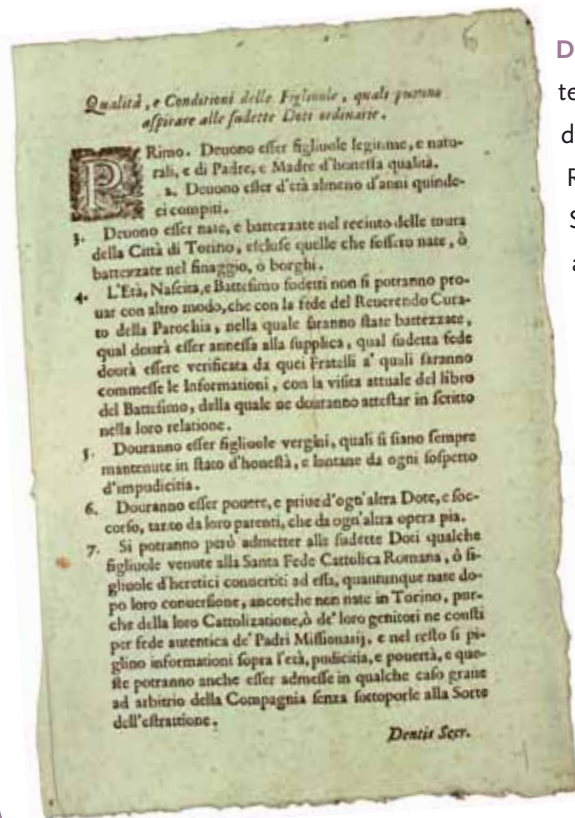 6
Qualità, e Conditioni delle Figliuole, quali
aspirare alle sudette Doti ordinarie.
PRimo. Deuono esser figliuole legitime, e natu-
rali, e di Padre, e Madre d'honesta qualità.
2. Deuono esser d'età almeno d'anni quinde-
ci compiti.
3. Deuono esser nate, e battezzate nel recinto delle mura
della Città di Torino, escluse quelle che fossero nate, ò
battezzate nel finaggio, o borghi.
4. L'Età, Nascita, e Battesimo sudetti non si potranno pro-
uar con altro modo, che con la fede del Reuerendo Cura-
to della Parochia, nella quale saranno state battezzate,
qual dourà esser annessa alla supplica, qual sudetta fede
dourà essere verificata da quei Fratelli a' quali saranno
commesse le Informationi, con la visita attuale del libro
del Battesimo, della quale ne douranno attestar in scritto
nella loro relatione.
5. Douranno esser figliuole vergini, quali si siano sempre
mantenute in stato d'honestà, e lontane da ogni sospetto
d'impudicitia.
6. Douranno esser pouere, e priue d'ogn'altra Dote, e soc-
corso, tanto da loro parenti, che da ogn'altra opera pia.
7. Si potranno però admetter alle sudette Doti qualche
figliuole venute alla Santa Fede Cattolica Romana, ò fi-
gliuole d'heretici conuertiti ad essa, quantunque nate do-
po loro conuersione, ancorche non nate in Torino, pur-
che della loro Cattolizatione, ò de' loro genitori ne consti
per fede autentica de' Padri Missionarij, e nel resto si pi-
glino informationi sopra l'età, pudicitia, e pouertà, e que-
ste potranno anche esser admesse in qualche caso graue
ad arbitrio della Compagnia senza sottoporle alla Sorte
dell'estrattione.
Dentis Secr.
D
te
d
R
S
a